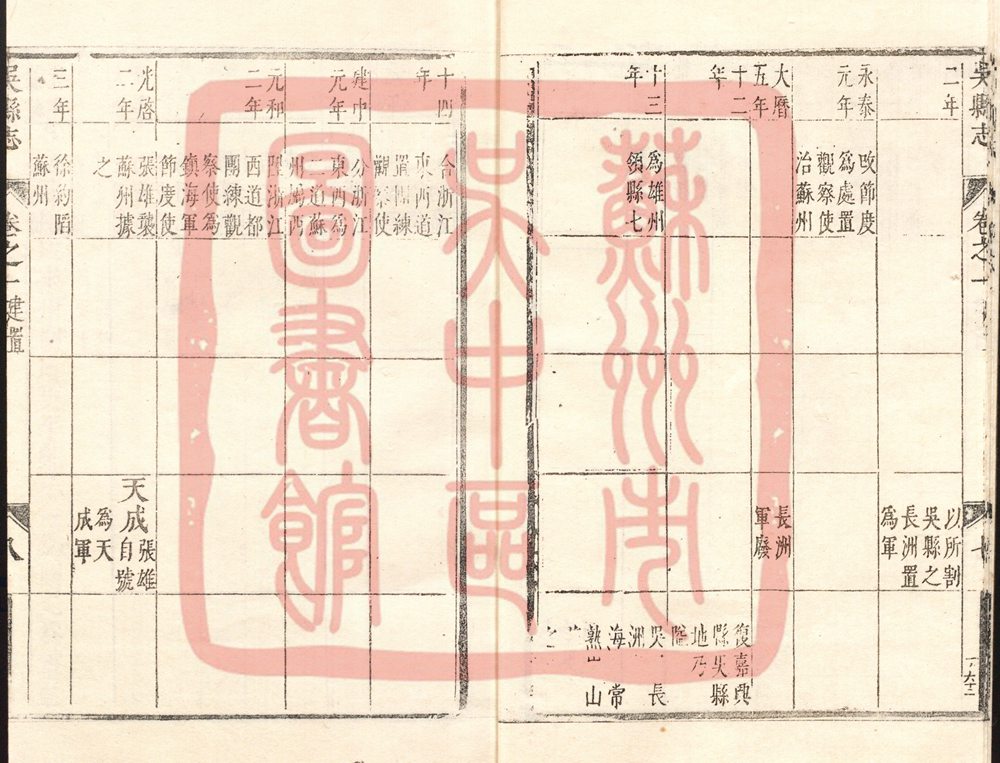 吳縣志
卷之一
七
二年
以所割
吳縣之
長洲置
為軍
永泰
元年
改節度
為處置
觀察使
治蘇州
大曆
五年
長洲
軍廢
十二
年
復嘉興
縣吳縣
地乃
十三
年
為雄州
領縣七
吳 長
洲
海 常
熟 山
十四
年
合浙江
東西道
置團練
觀察使
建中
元年
分浙江
東西為
二道蘇
州屬西
元和
二年
陞浙江
西道都
團練觀
察使為
鎮海軍
節度使
光啓
二年
張雄襲
蘇州據
之
天成
張雄
自號
為天
成軍
三年
徐約陷
蘇州
吳縣志
卷之一 建置
八
蘇州市
吳中區
圖書館